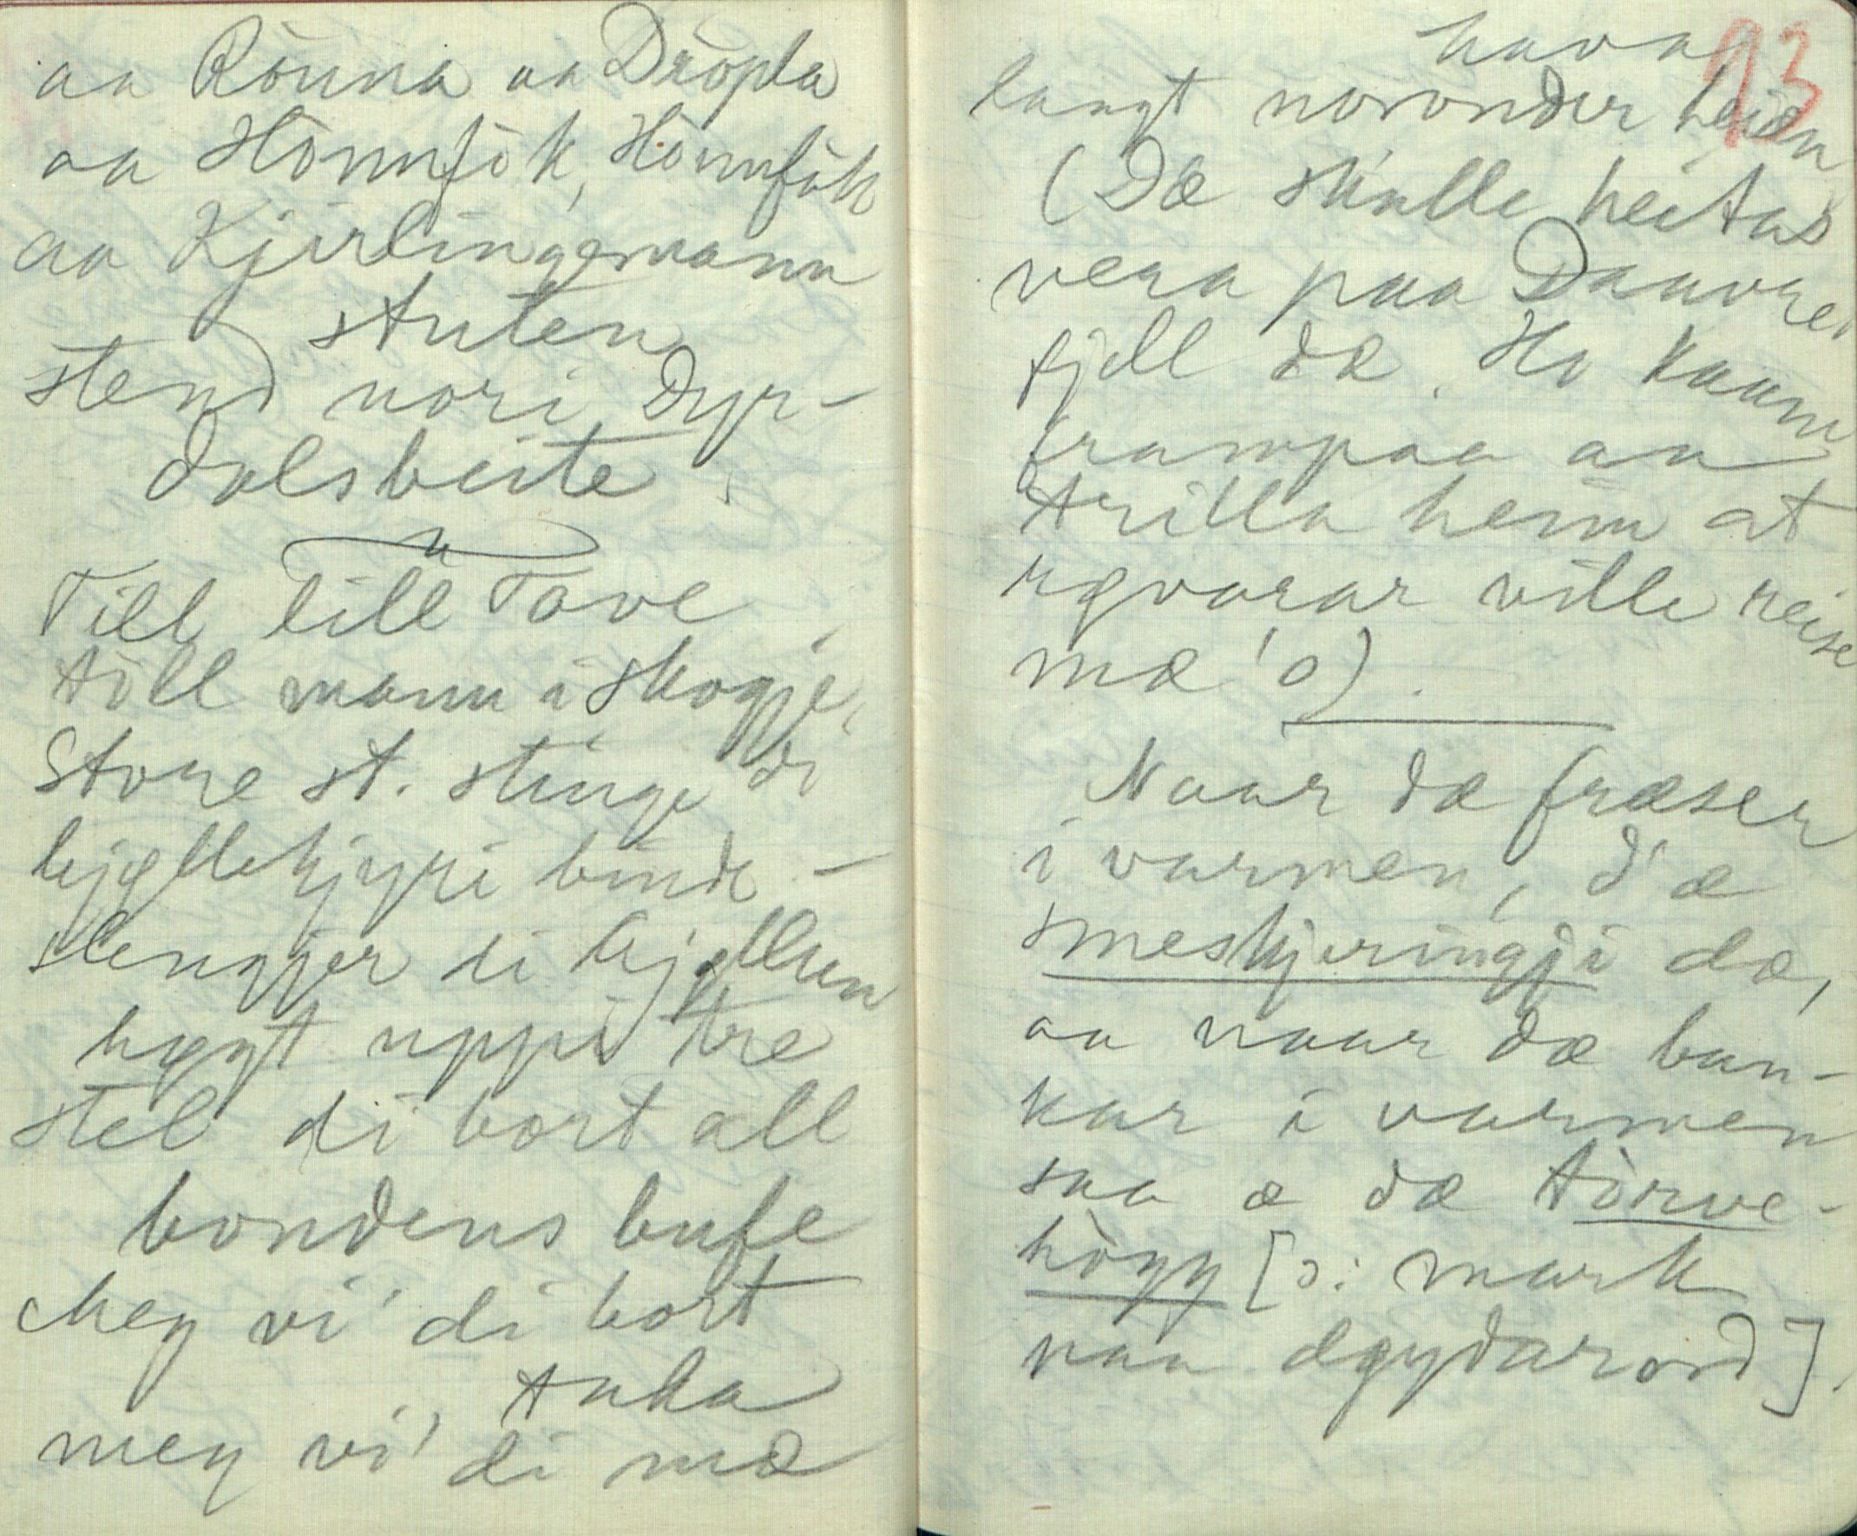 aa Rònna aa Dròpla
aa Hònnfòk, Hònnfòk
aa Kjerlingemann
stuten
stend nori Dyr-
dalsbeite.
Till lill Tove
tòll mann i skogje,
Store st. stinge di
bjøllekjyri binde -
slengjer di bjøllun
høgt uppi tre
stel di bort all
bondens bufe
Meg vi' di bort
taka
meg vi' di mæ
93
hava
langt noronder heiæn
(Dæ skulle heitas
vera paa Daavre,
fjell dæ. Ho kaam
frampaa aa
trilla heim at
rgvarar ville reise
mæ 'o).
Naar dæ fræser
i varmen, d'æ
smeskjeringji dæ,
aa naar dæ ban-
kar i varmen
saa æ dæ tòrve-
hògg [ɔ: mark
naa øgydarord].